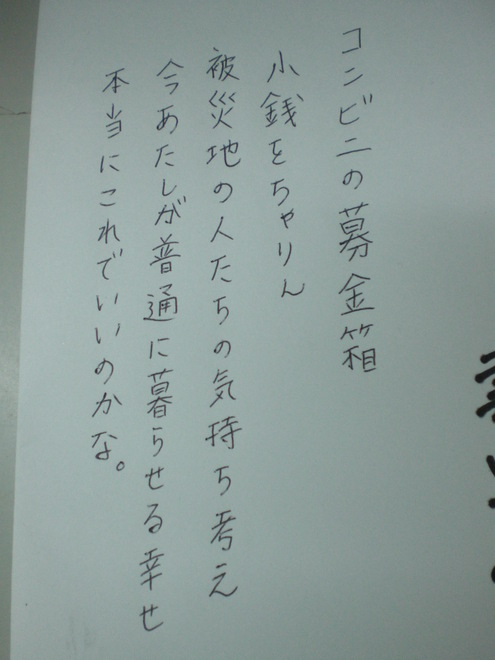 コンビニの募金箱
小銭をちゃりん
被災地の人たちの気持ち考え
今あたしが普通に暮らせる幸せ
本当にこれでいいのかな。